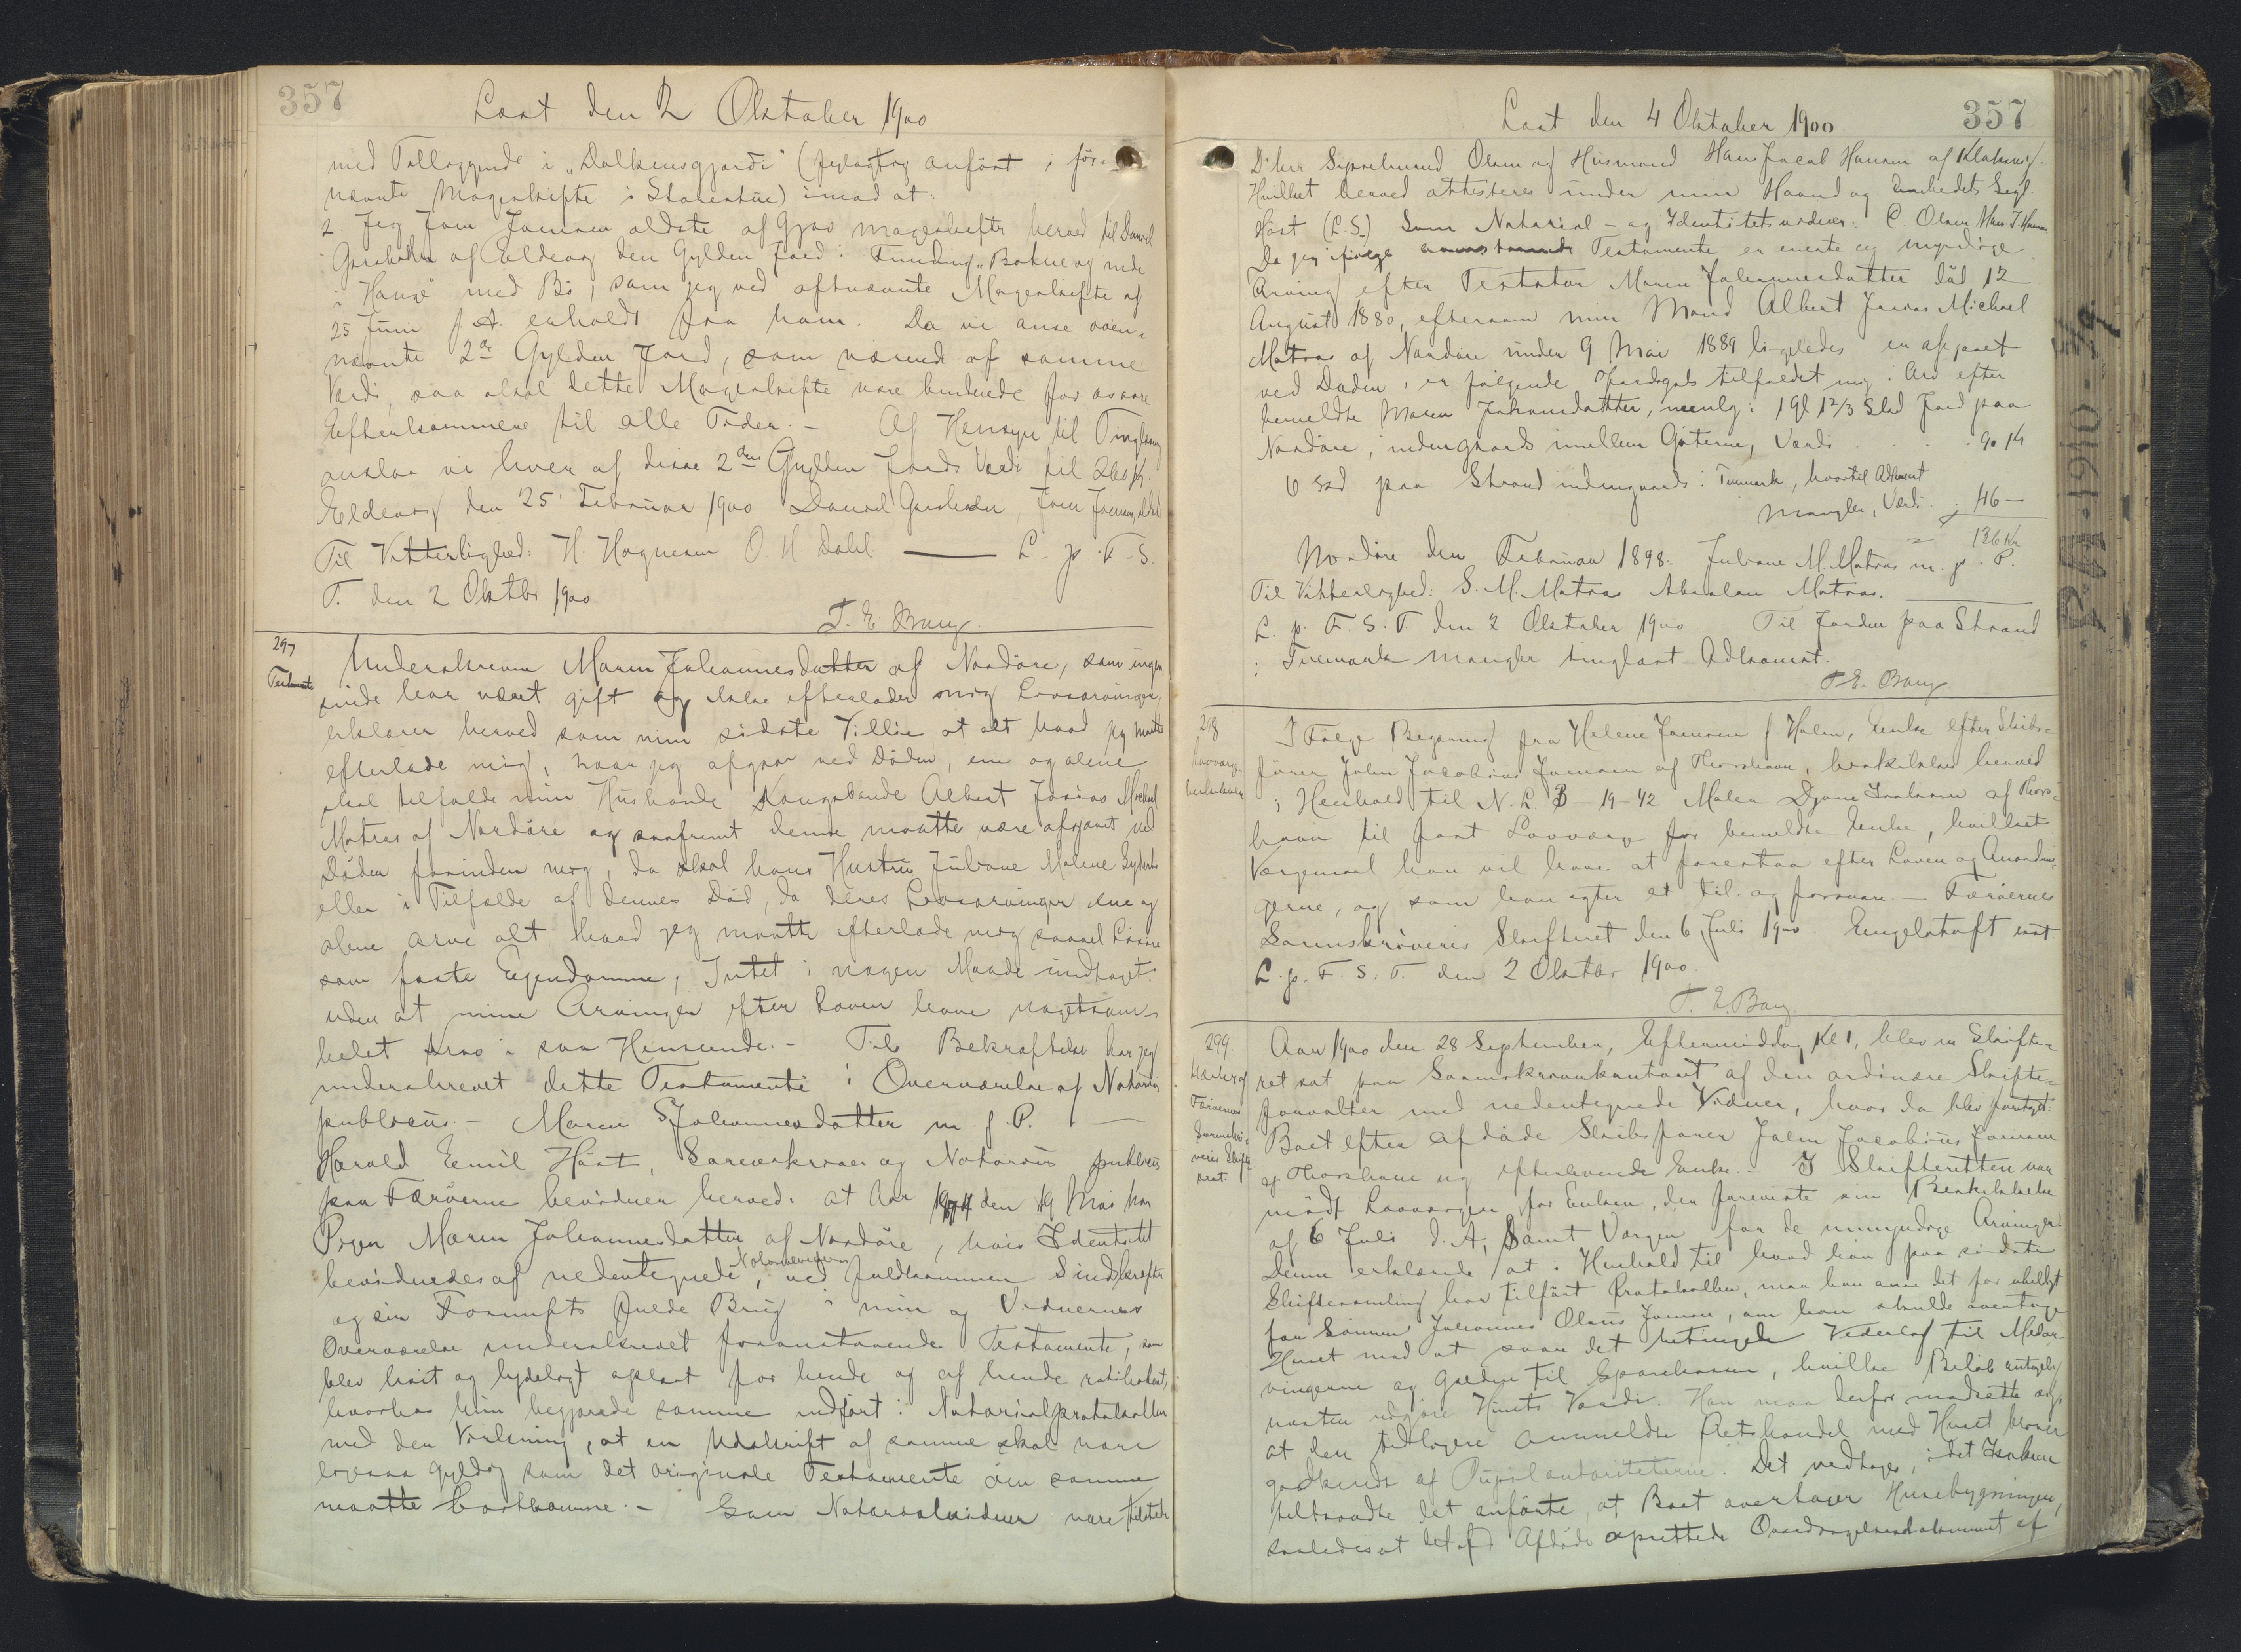 357
Læst den 2 Oktober 1900
med Tilliggende i "Dalkinsgjordi" (feilagtig anført i før=
nævnte Mageskifte i Stolentùe) imod at:
2. Jeg Joen Joensen ældste af Gjov mageskifter herved til Daniel
af Eldevig den Gylden Jord i Funding, "Bakke og nede
i Hauge" med Bö, som jeg ved oftnævnte Mageskifte af
25 Juni f. A. erholdt fra ham. Da vi anse oven=
nævnte 2de Gylden Jord, som værende af samme
Værdi, saa skal dette Mageskifte være bindende for os vore
Efterkommere til alle Tider. - Af Hensyn til Tinglæsning
anslaa vi hver af disse 2de Gylden Jords Værdi til 260 Kr.
Eldevig den 25 Februar 1900 Daniel Joen Joensen ældste
Til Vitterlighed: H. Høgnesen O. H. Dahl — L. p. F. S.
T. den 2 Oktbr 1900
T. E. Bang
297
Testamente
Underskrevne Maren Johannesdatter af Nordöre, som ingen
sinde har været gift og ikke efterlader mig Livsarvinger,
erklærer herved som min sidste Villie at alt hvad jeg maatte
efterlade mig, naar jeg afgaar ved Döden, ene og alene
skal tilfalde min Husbonde Kongsbonde Albert Jóaias Michael
Matras af Nordöre og saafremt denne maatte være afgaaet ved
Döden forinden mig, da skal hans Hustru Juliane Malene
eller i Tilfælde af dennes Död, da deres Livsarvinger ene og
alene arve alt hvad jeg maatte efterlade mig saavel Lösöre
som faste Ejendomme, Intet i nogen Maade undtaget.
uden at mine Arvinger efter Loven have nogetsom=
helst Krav i saa Henseende. - Til Bekræftelse har jeg
underskrevet dette Testamente i Overværelse af Notarius
publicus. - Maren S Johannesdatter m. f. P. —
Harald Emil Höst, Sorenskriver og Notarius publicus
paa Færöerne bevidner herved: at Aar den 19 Mai har
Pigen Maren Johannesdatter af Nordöre, hvis Identitet
bevidnedes af nedentegnede Notarialvidner, ved fuldkommen Sindskræfter
og sin Fornufts fulde Brug i min og Vidnernes
Overværelse underskrevet foranstaaende Testamente, som
blev höit og lydeligt oplæst for hende og af hende ratihaberet,
hvorhos hun begjærede samme indfört i Notarialprotokollen
med den Virkning, at en Udskrift af samme skal være
ligesaa gyldig som det originale Testamente om samme
maatte bortkomme. - Som Notarialvidner vare tilstede
357
Læst den 4 Oktober 1900
D'hrr Sysselmand Olsen og Husmand Hans Jacob Hansen af Klaksvig.
Hvilket herved attesteres under min Haand og Embedets Segl.
Höst (L.S.) Som Notarial - og Identitetsvidner: C. Olsen Hans J. Hansen
Da jeg ifölge Testamente er eneste og myndige
Arving efter Testator Maren Johannesdatter död 12
August 1880, eftersom min Mand Albert Joaias Michael
Matras af Nordöre under 9 Mai 1889 ligeledes er afgaaet
ved Döden, er fölgende Jordgods tilfaldet mig i Arv efter
bemeldte Maren Johannesdatter, nemlig: 1 Gl 1 2/3 Skd Jord paa
Nordöre, indengaards imellem Gøterne, Værdi . . . 90 Kr
6 Skd paa Strand indengaards i Turmærk, hvortil Adkomst
mangler, Værdi . j 46 —
= 136 Kr
Nordöre den Februar 1898. Juliane M. Matras m. f. P.
Til Vitterlighed: S. M. Matras Abraham Matras.
L. p. F. S. T. den 2 Oktober 1900 Til Jorden paa Strand
i Turmærk mangler tinglæst Adkomst.
T. E. Bang
298
I Fölge Begjæring fra Helene Joensen f. Holm, Enke efter Skibs=
förer John Jacobsius Joensen af Thorshavn, beskikkes herved
i Henhold til N. L. 3 - 19 - 42 Maler Djone Isaksen af Thors=
havn til fast Lavværge for bemeldte Enke, hvilket
Værgemaal han vil have at forestaa efter Loven og Anordnin=
gerne, og som han agter at til- og forsvare - Færöernes
Sorenskriveris Skifteret den 6 Juli 1900. Engelstoft cst
L. p. F. S. T. den 2 Oktbr 1900.
T. E. Bang
299.
Udskrift af
Færöernes
Sorenskri=
veris Skifte
ret.
Aar 1900 den 28 September, Eftermiddag Kl 1, blev en Skifte=
ret sat paa Sorenskriverkontoret af den ordinære Skifte=
forvalter med nedentegnede Vidner, hvor da blev foretaget:
Boet efter afdöde Skibsförer John Jacobsius Joensen
af Thorshavn og efterlevende Enke. - I Skifteretten var
mödt Lavværgen for Enken, der foreviste sin Beskikkelse
af 6 Juli d. A., Samt Værgen for de umyndige Arvinger.
Denne erklærede at i Henhold til hvad han paa sidste
Skiftesamling har tilfört Protokollen, maa han anse det for uheldigt
for Sönnen Johannes Olaus Joensen, om han skulde overtage
Huset mod at svare det betingede Vederlag til Medar=
vingerne og Gælden til Sparekassen, hvilke Belöb antagelig
næsten udgjöre Husets Værdi. Han maa derfor modsætte sig,
at den tidligere anmeldte Retshandel med Huset bliver
godkendt af Pupilautoriteterne. Det vedtages, idet Isaksen
tiltraadte det anförte, at Boet overtager Husebygningen,
saaledes at det af Afdöde oprettede Overdragelsesdokument af